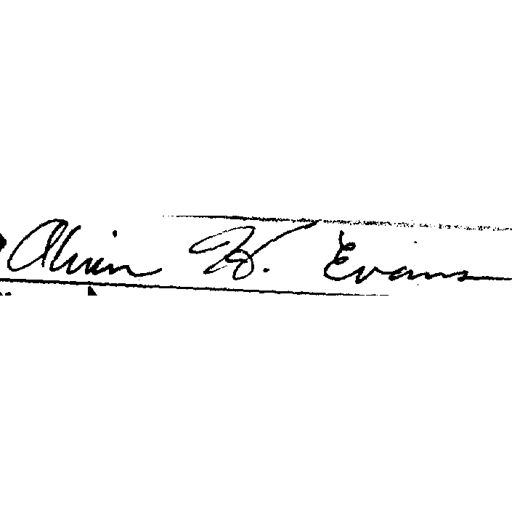 Alvin H. Evans